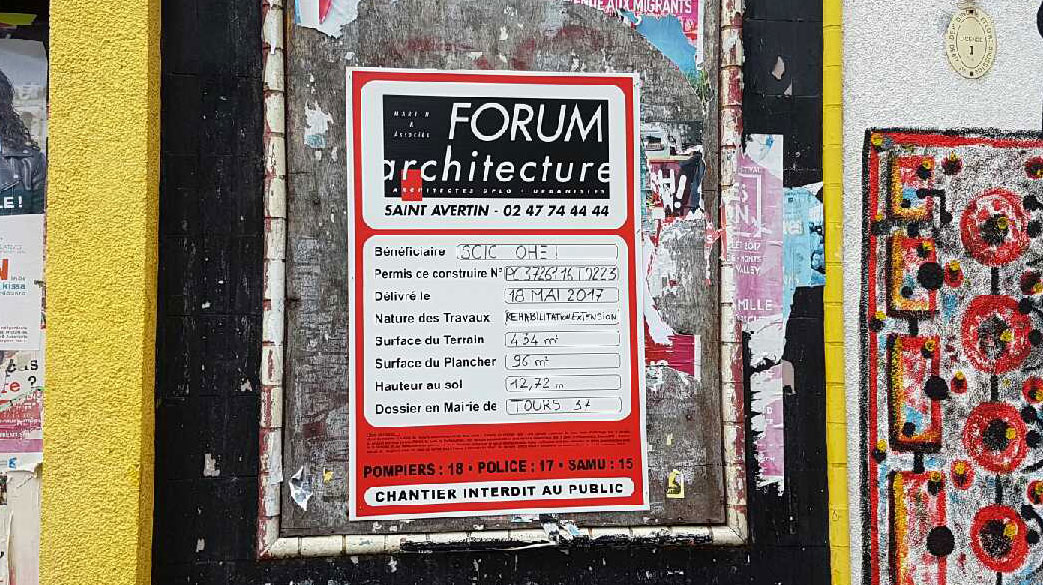 AUX MIGRANTS
FORUM
architecture
ARCHITECTES DPLG - URBANISTES
SAINT AVERTIN - 02 47 74 44 44
Bénéficiaire SCIC OHE
Permis ce construire N°
Délivré le 18 MAI 2017
Nature des Travaux REHABILITATION EXTENSION
Surface du Terrain 434 m²
Surface du Plancher 96 m²
Hauteur au sol 12,72 m
Dossier en Mairie de TOURS 37
POMPIERS : 18 • POLICE : 17 • SAMU : 15
CHANTIER INTERDIT AU PUBLIC
LE !
kissa
re ?
H!
VALLEY
MILLE